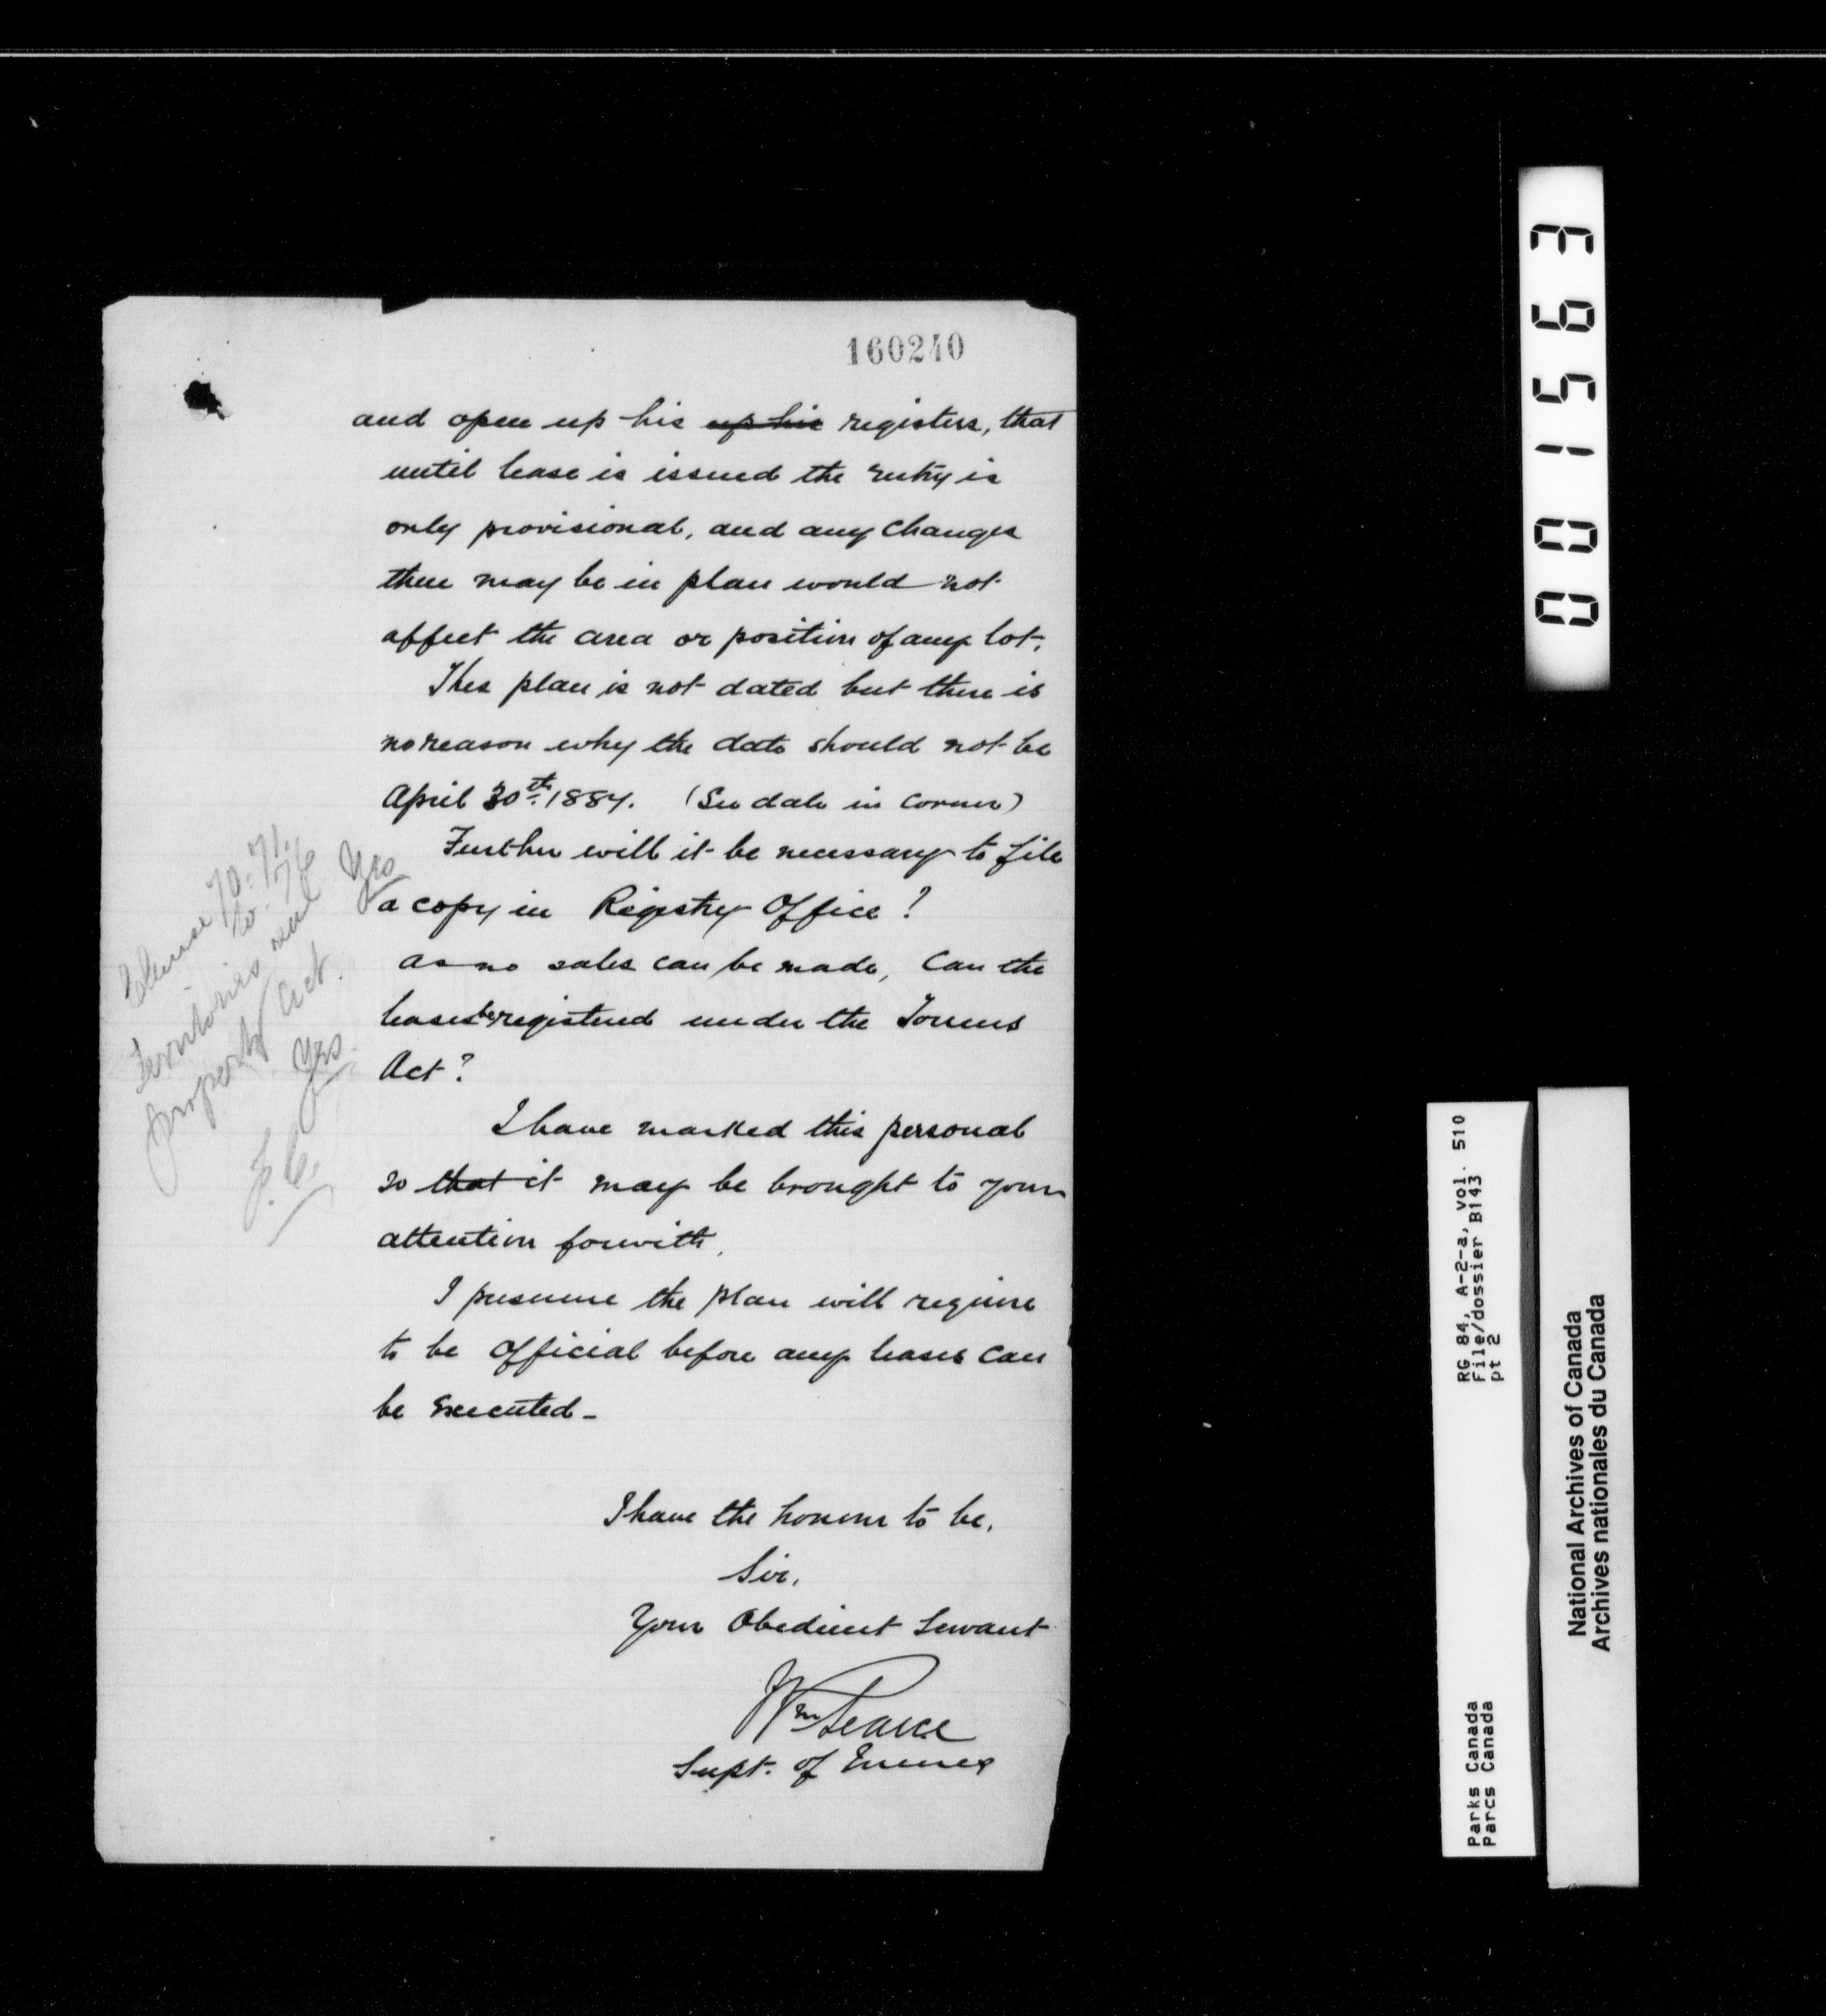 160240
and open up his up his registers, that
until lease is issued the entry is
only provisional, and any changes
there may be in plan would not
affect the area or position of any lot.
This plan is not dated but there is
no reason why the date should not be
April 30th 1887. (See date in corner)
Further will it be necessary to file
a copy in Registry Office?
As no sales can be made, Can the
leases be registered under the Torrens
Act?
I have marked this personal
so that it may be brought to your
attention forwith.
I presume the plan will require
to be Official before any leases can
be executed_
I have the honour to be,
Sir,
Your Obedient Servant
Wm Pearce
Supt. of Mines
Yes
Clause 70. 71.
to 76
Territories real
property Act.
Yes.
001563
RG 84, A-2-a, vol. 510
File/dossier B143
pt 2
Parks Canada
Parcs Canada
National Archives of Canada
Archives nationales du Canada